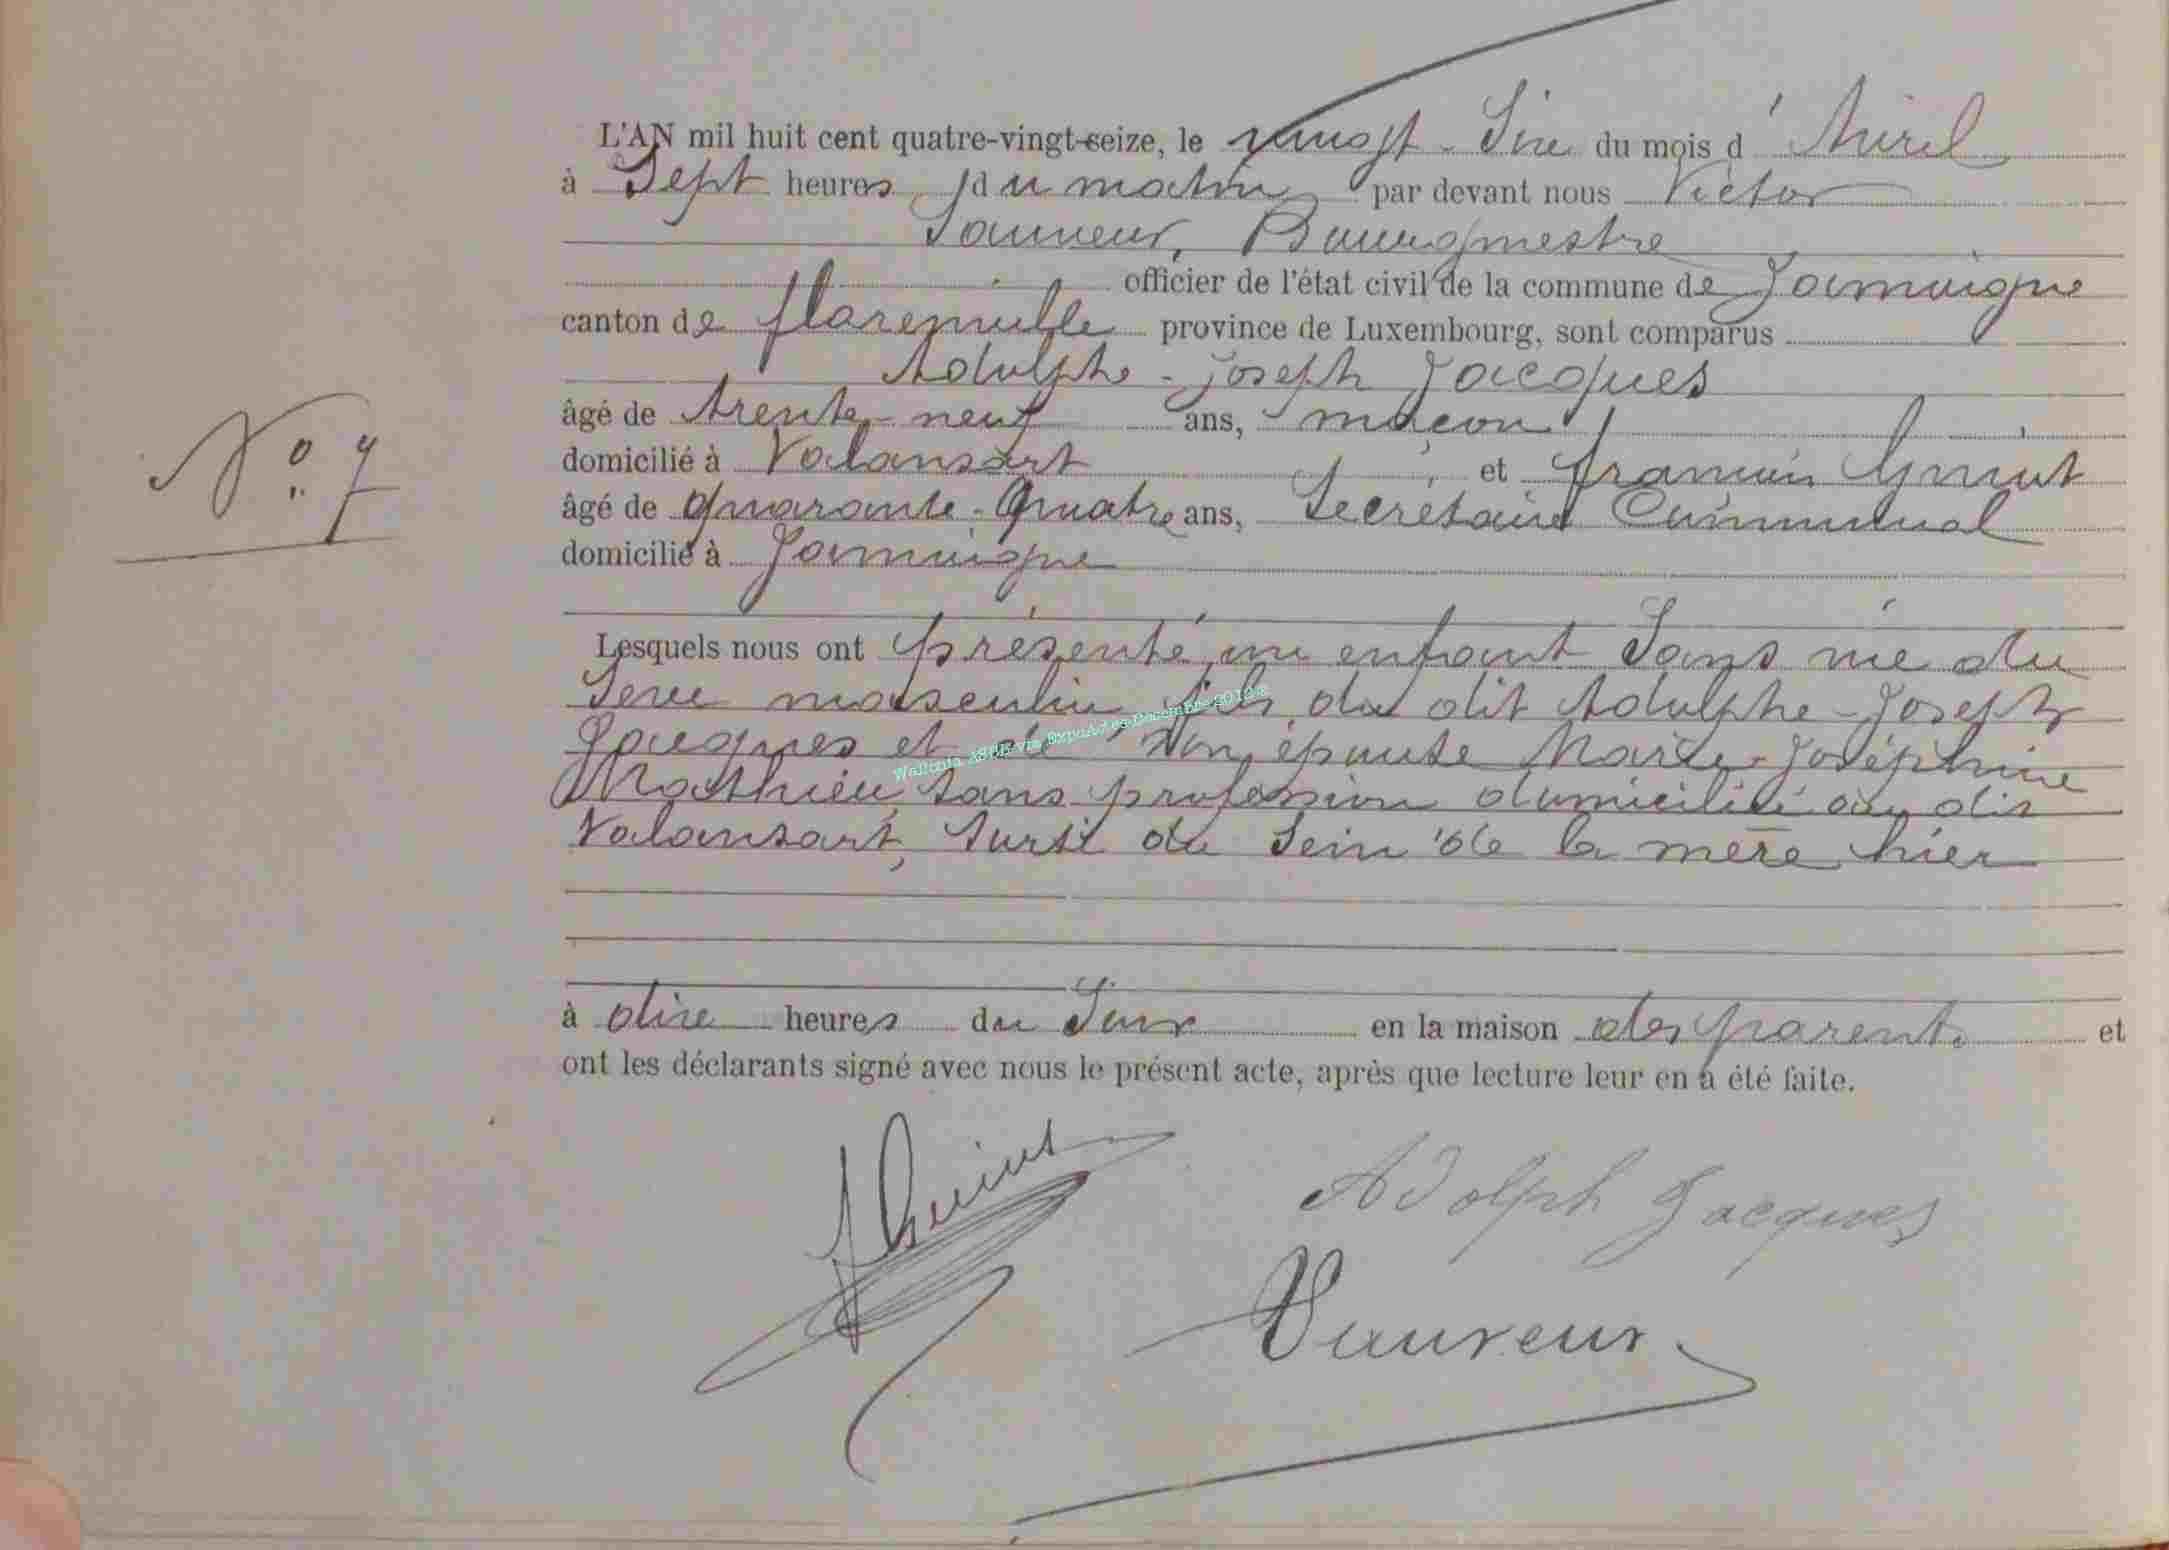 L'AN mil huit cent quatre-vingt-seize, le vingt-Six du mois d'Avril
à Sept heures du matin par devant nous Victor
Sauveur, Bourgmestre
officier de l'état civil de la commune de Jamoigne
canton de florenville province de Luxembourg, sont comparus
Adolphe-Joseph Jacques
âgé de trente-neuf ans, maçon
domicilié à Valansart et françois
N° 7
âgé de quarante-quatre ans, Secrétaire Communal
domicilié à Jamoigne
Lesquels nous ont présenté un enfant Sans vie du
Sexe masculin fils du dit Adolphe-Joseph
Jacques et de son épouse Marie-Joséphine
Mathieu, sans profession domiciliée au dit
Valansart, Sorti du Sein de la mère hier
à dix heures du Soir en la maison des parents et
ont les déclarants signé avec nous le présent acte, après que lecture leur en a été faite.
Adolph Jacques
Sauveur